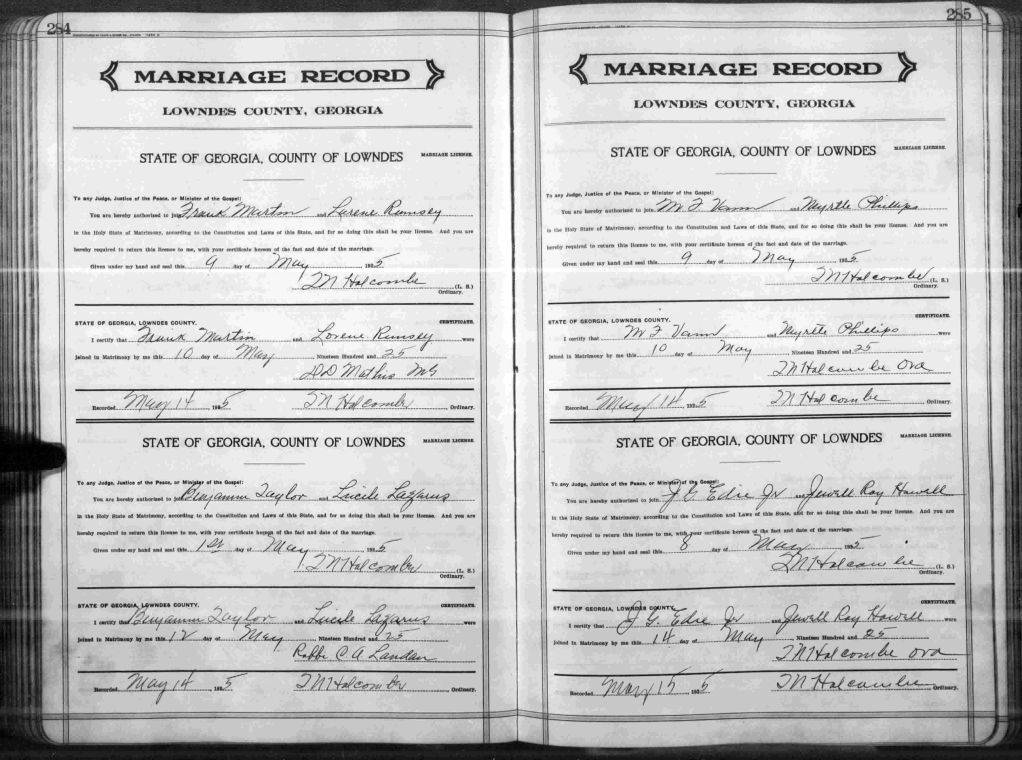 284
MARRIAGE RECORD
LOWNDES COUNTY, GEORGIA
STATE OF GEORGIA, COUNTY OF LOWNDES MARRIAGE LICENSE.
To any Judge, Justice of the Peace, or Minister of the Gospel:
You are hereby authorized to join Frank Martin and Lurene Rumsey
in the Holy State of Matrimony, according to the Constitution and Laws of this State, and for so doing this shall be your license. And you are
hereby required to return this license to me, with your certificate hereon of the fact and date of the marriage.
Given under my hand and seal this 9 day of May 1925
T N Holcombe (L. S.)
Ordinary.
STATE OF GEORGIA, LOWNDES COUNTY. CERTIFICATE.
I certify that Frank Martin and Lorene Rumsey were
joined in Matrimony by me this 10 day of May Nineteen Hundred and 25
D D Mathis MG
Recorded May 14, 1925 T N Holcombe Ordinary.
STATE OF GEORGIA, COUNTY OF LOWNDES MARRIAGE LICENSE.
To any Judge, Justice of the Peace, or Minister of the Gospel:
You are hereby authorized to join Benjamin Taylor and Lucile Lazarus
in the Holy State of Matrimony, according to the Constitution and Laws of this State, and for so doing this shall be your license. And you are
hereby required to return this license to me, with your certificate hereon of the fact and date of the marriage.
Given under my hand and seal this 1st day of May 1925
T N Holcombe (L. S.)
Ordinary.
STATE OF GEORGIA, LOWNDES COUNTY. CERTIFICATE.
I certify that Benjamin Taylor and Lucile Lazarus were
joined in Matrimony by me this 12 day of May Nineteen Hundred and 25
Rabbi C A Landau
Recorded May 14, 1925 T N Holcombe Ordinary.
285
MARRIAGE RECORD
LOWNDES COUNTY, GEORGIA
STATE OF GEORGIA, COUNTY OF LOWNDES MARRIAGE LICENSE.
To any Judge, Justice of the Peace, or Minister of the Gospel:
You are hereby authorized to join W F Vann and Myrtle Phillips
in the Holy State of Matrimony, according to the Constitution and Laws of this State, and for so doing this shall be your license. And you are
hereby required to return this license to me, with your certificate hereon of the fact and date of the marriage.
Given under my hand and seal this 9 day of May 1925
T N Holcombe (L. S.)
Ordinary.
STATE OF GEORGIA, LOWNDES COUNTY. CERTIFICATE.
I certify that W F Vann and Myrtle Phillips were
joined in Matrimony by me this 10 day of May, Nineteen Hundred and 25
T N Holcombe Ord
Recorded May 14, 1925 T N Holcombe Ordinary.
STATE OF GEORGIA, COUNTY OF LOWNDES MARRIAGE LICENSE.
To any Judge, Justice of the Peace, or Minister of the Gospel:
You are hereby authorized to join J G Edie Jr and Jewell Ray Howell
in the Holy State of Matrimony, according to the Constitution and Laws of this State, and for so doing this shall be your license. And you are
hereby required to return this license to me, with your certificate hereon of the fact and date of the marriage.
Given under my hand and seal this 8 day of May 1925
T N Holcombe (L. S.)
Ordinary.
STATE OF GEORGIA, LOWNDES COUNTY. CERTIFICATE.
I certify that J G. Edie Jr and Jewell Ray Howell were
joined in Matrimony by me this 14 day of May Nineteen Hundred and 25
T N Holcombe Ord
Recorded May 15, 1925 T N Holcombe Ordinary.